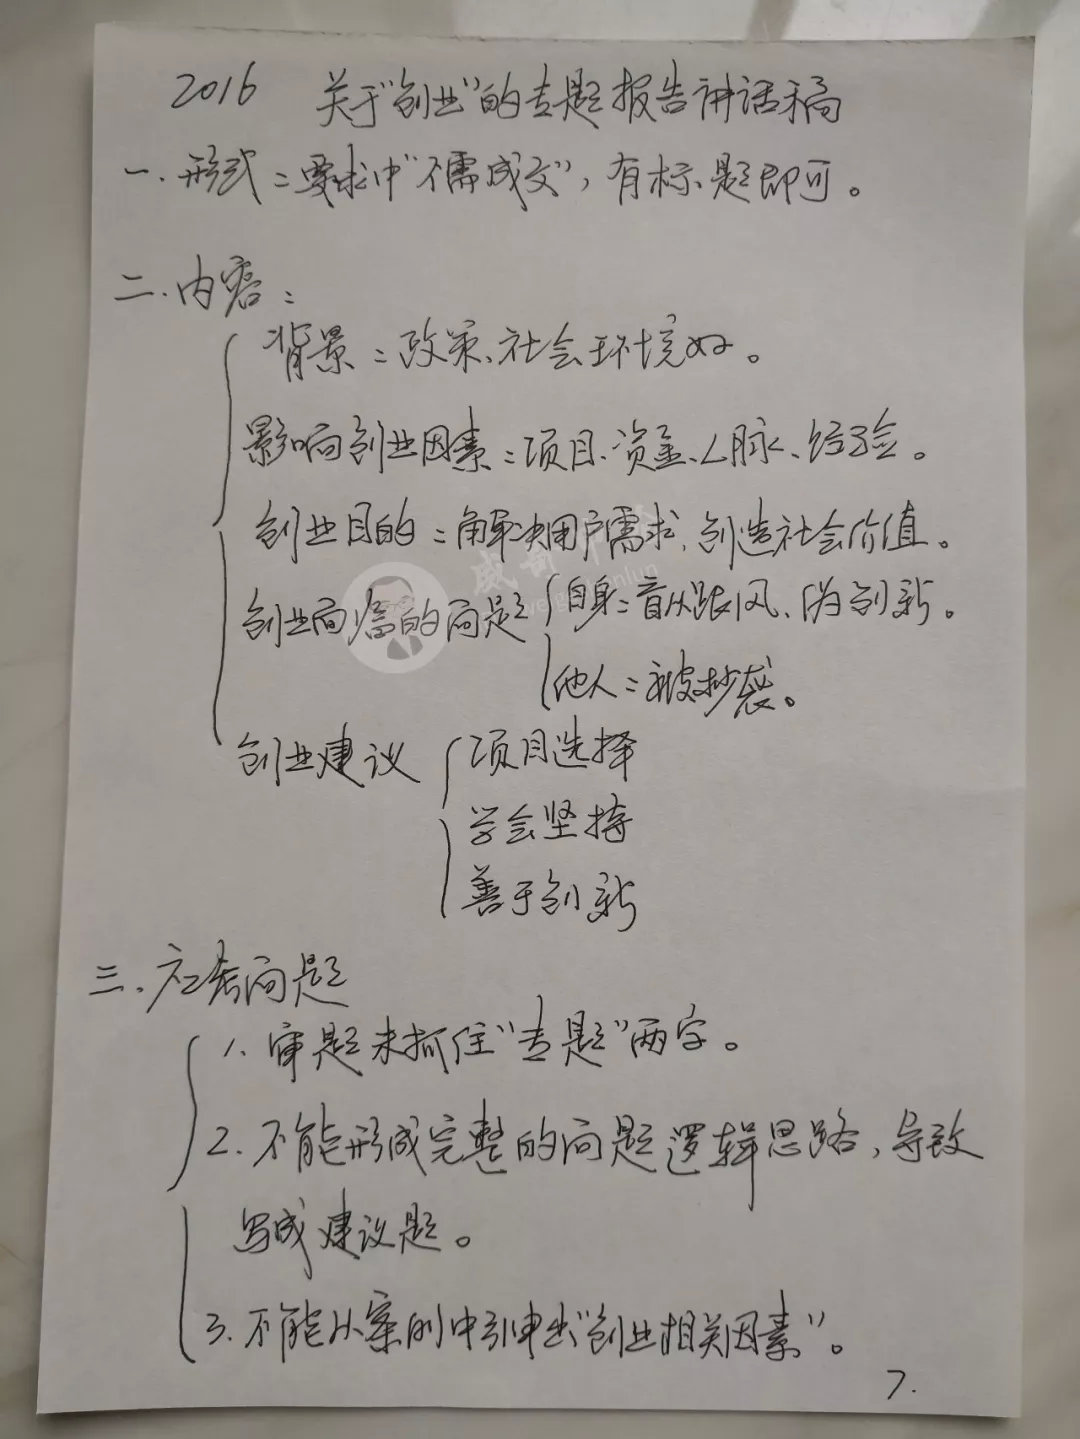 2016 关于“创业”的专题报告讲话稿
一.形式：要求中“不需成文”，有标题即可。
二.内容：
背景：政策、社会环境好。
影响创业因素：项目、资金、人脉、经验。
创业目的：解决用户需求、创造社会价值。
创业面临的问题
自身：盲从跟风、伪创新。
他人：被抄袭。
创业建议
项目选择
学会坚持
善于创新
三.应考问题
1.审题未抓住“专题”两字。
2.不能形成完整的问题逻辑思路，导致
写成建议题。
3.不能从案例中引申出“创业相关因素”。
7.